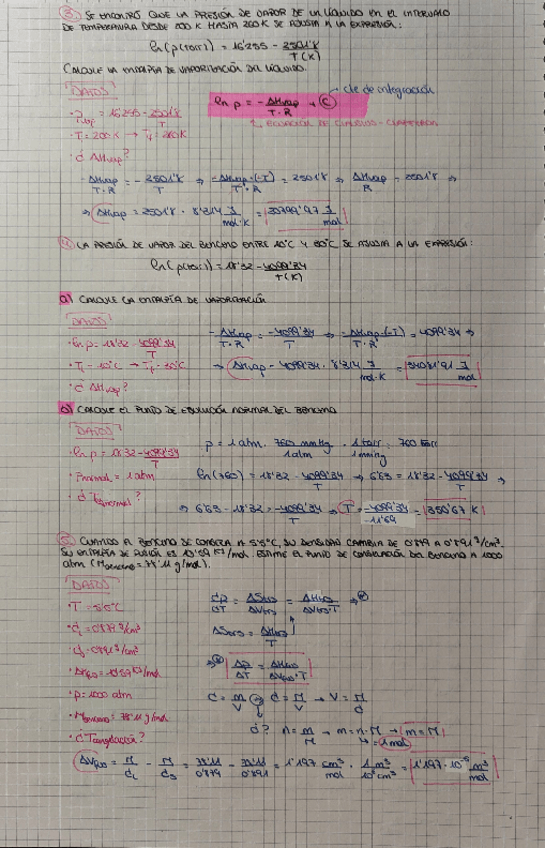 3. SE ENCONTRÓ QUE LA PRESIÓN DE VAPOR DE UN LÍQUIDO EN EL INTERVALO
DE TEMPERATURA DESDE 200 K HASTA 260 K SE AJUSTA A LA EXPRESIÓN:
ln(p(torr)) = 16'255 - 2501'8/T(K)
CALCULE LA ENTALPÍA DE VAPORIZACIÓN DEL LÍQUIDO.
DATOS
ln p = - ΔHvap/T·R + C → cte de integración
↑ ECUACIÓN DE CLAUSIUS-CLAPEYRON
· T = 200K → Tf = 260K
· ¿ΔHvap?
- ΔHvap/T·R = - 2501'8/T ⇒ - ΔHvap·(-T)/T·R = 2501'8 ⇒ ΔHvap/R = 2501'8 ⇒
⇒ ΔHvap = 2501'8 · 8'314 J/mol·K = 20799'97 J/mol
4. LA PRESIÓN DE VAPOR DEL BENCENO ENTRE 10°C Y 30°C SE AJUSTA A LA EXPRESIÓN:
ln(p(torr)) = 18'32 - 4099'34/T(K)
a) CALCULE LA ENTALPÍA DE VAPORIZACIÓN
DATOS
· ln p = 18'32 - 4099'34/T
· Ti = 10°C → Tf = 30°C
· ¿ΔHvap?
- ΔHvap/T·R = - 4099'34/T ⇒ - ΔHvap·(-T)/T·R = 4099'34 ⇒
⇒ ΔHvap = 4099'34 · 8'314 J/mol·K = 34081'91 J/mol
b) CALCULE EL PUNTO DE EBULLICIÓN NORMAL DEL BENCENO
DATOS
· ln p = 18'32 - 4099'34/T
· Pnormal = 1 atm
· ¿Tnormal?
p = 1 atm · 760 mmHg/1 atm · 1 torr/1 mmHg = 760 torr
ln(760) = 18'32 - 4099'34/T → 6'63 = 18'32 - 4099'34/T ⇒
⇒ 6'63 - 18'32 = - 4099'34/T ⇒ T = -4099'34/-11'69 = 350'67 K
5. CUANDO EL BENCENO SE CONGELA A 5'5°C, SU DENSIDAD CAMBIA DE 0'879 A 0'891 g/cm³.
SU ENTALPÍA DE FUSIÓN ES 10'59 KJ/mol. ESTIME EL PUNTO DE CONGELACIÓN DEL BENCENO A 1000
atm (Mbenceno = 78'11 g/mol).
DATOS
· T = 5'5°C
· dl = 0'879 g/cm³
· ds = 0'891 g/cm³
· ΔHfus = 10'59 KJ/mol
· p = 1000 atm
· Mbenceno = 78'11 g/mol
· ¿Tcongelación?
dp/dT = ΔSfus/ΔVfus = ΔHfus/ΔVfus·T
ΔSfus = ΔHfus/T
Δp/ΔT = ΔHfus/ΔVfus·T
d = m/V → d = M/V → V = M/d
¿? n = m/M → m = n·M → m = M
n = 1 mol
ΔVfus = M/dl - M/ds = 78'11/0'879 - 78'11/0'891 = 1'197 cm³/mol · 1 m³/10⁶ cm³ = 1'197·10⁻⁶ m³/mol